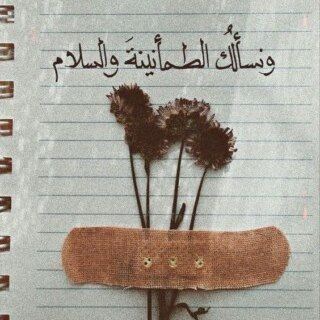 ونسألُك الطمأنينةَ والسلام